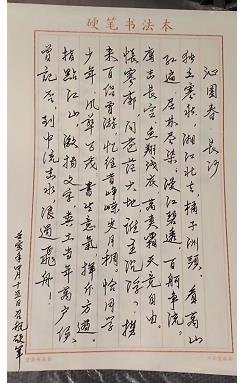 硬笔书法本
沁園春·長沙
独立寒秋,湘江北去,橘子洲頭。看萬山
红遍,层林尽染;漫江碧透,百舸争流。
鹰击長空,鱼翔浅底,萬类霜天竞自由。
怅寥廓,问苍茫大地,谁主沉浮?携
来百侣曾游,忆往昔峥嵘岁月稠。恰同学
少年,风华正茂;書生意氣,挥斥方遒。
指點江山,激揚文字,粪土当年萬户侯。
曾記否,到中流击水,浪遏飞舟!
壬寅年四月十五日启航硬笔